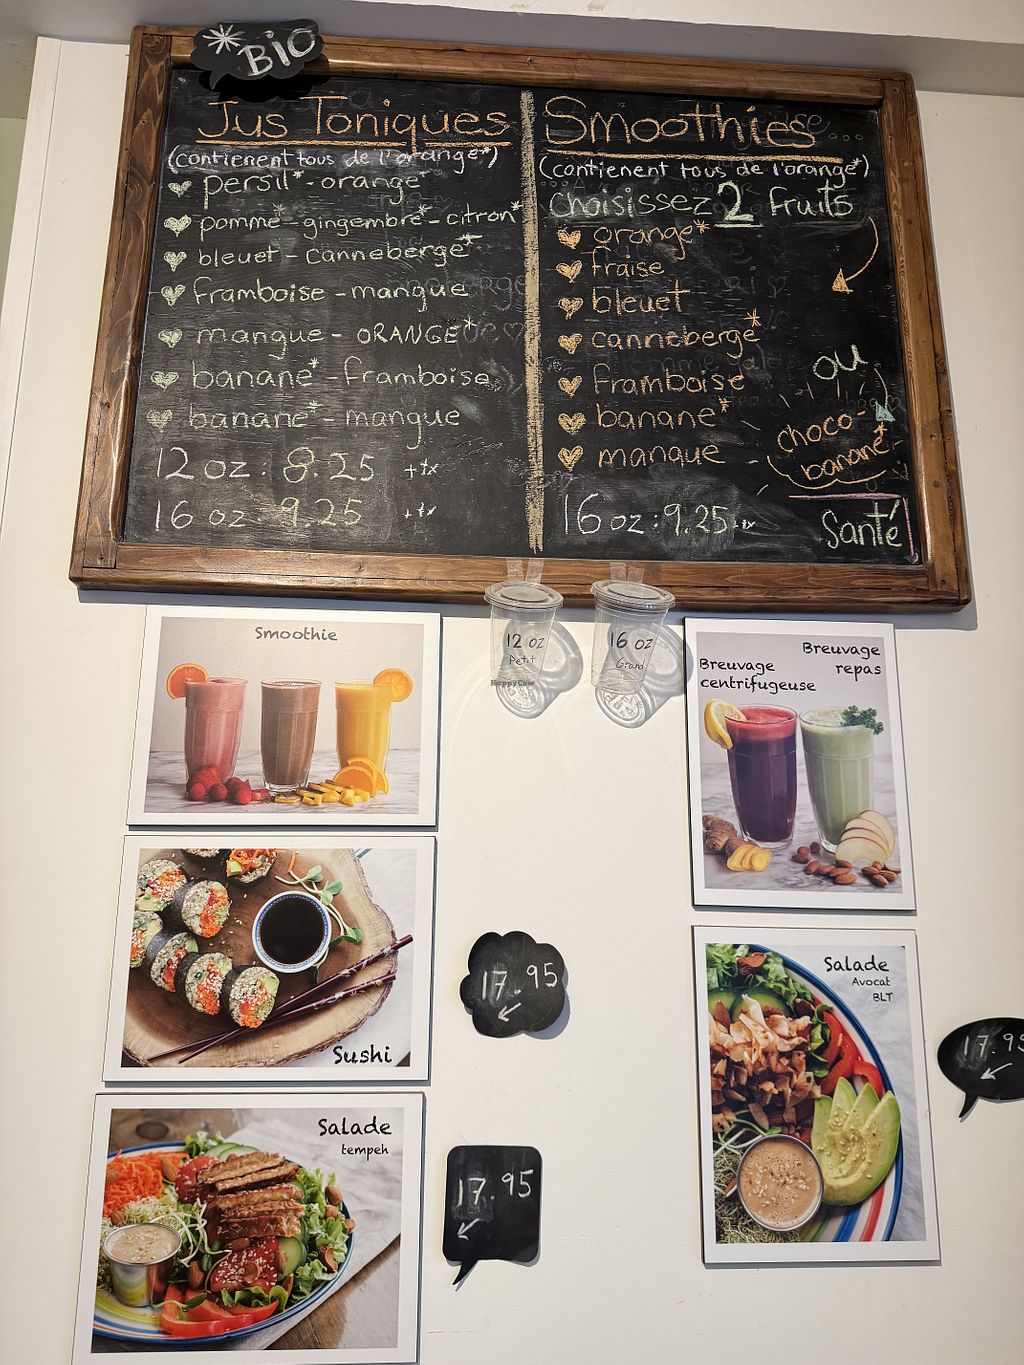 *BIO
Jus Toniques
(contiennent tous de l'orange*)
persil* - orange*
pomme* - gingembre* - citron*
bleuet - canneberge*
framboise - mangue
mangue - ORANGE*
banane* - framboise
banane* - mangue
12 oz : 8.25 + tx
16 oz : 9.25 + tx
Smoothies
(contienent tous de l'orange*)
Choisissez 2 fruits
orange*
fraise
bleuet
canneberge*
framboise
banane*
mangue
ou
choco-
banane*
16 oz : 9.25 + tx
Santé
12 oz
Petit
16 oz
Grand
HappyCow
Smoothie
Breuvage
repas
Breuvage
centrifugeuse
Sushi
17.95
Salade
Avocat
BLT
17.95
Salade
tempeh
17.95